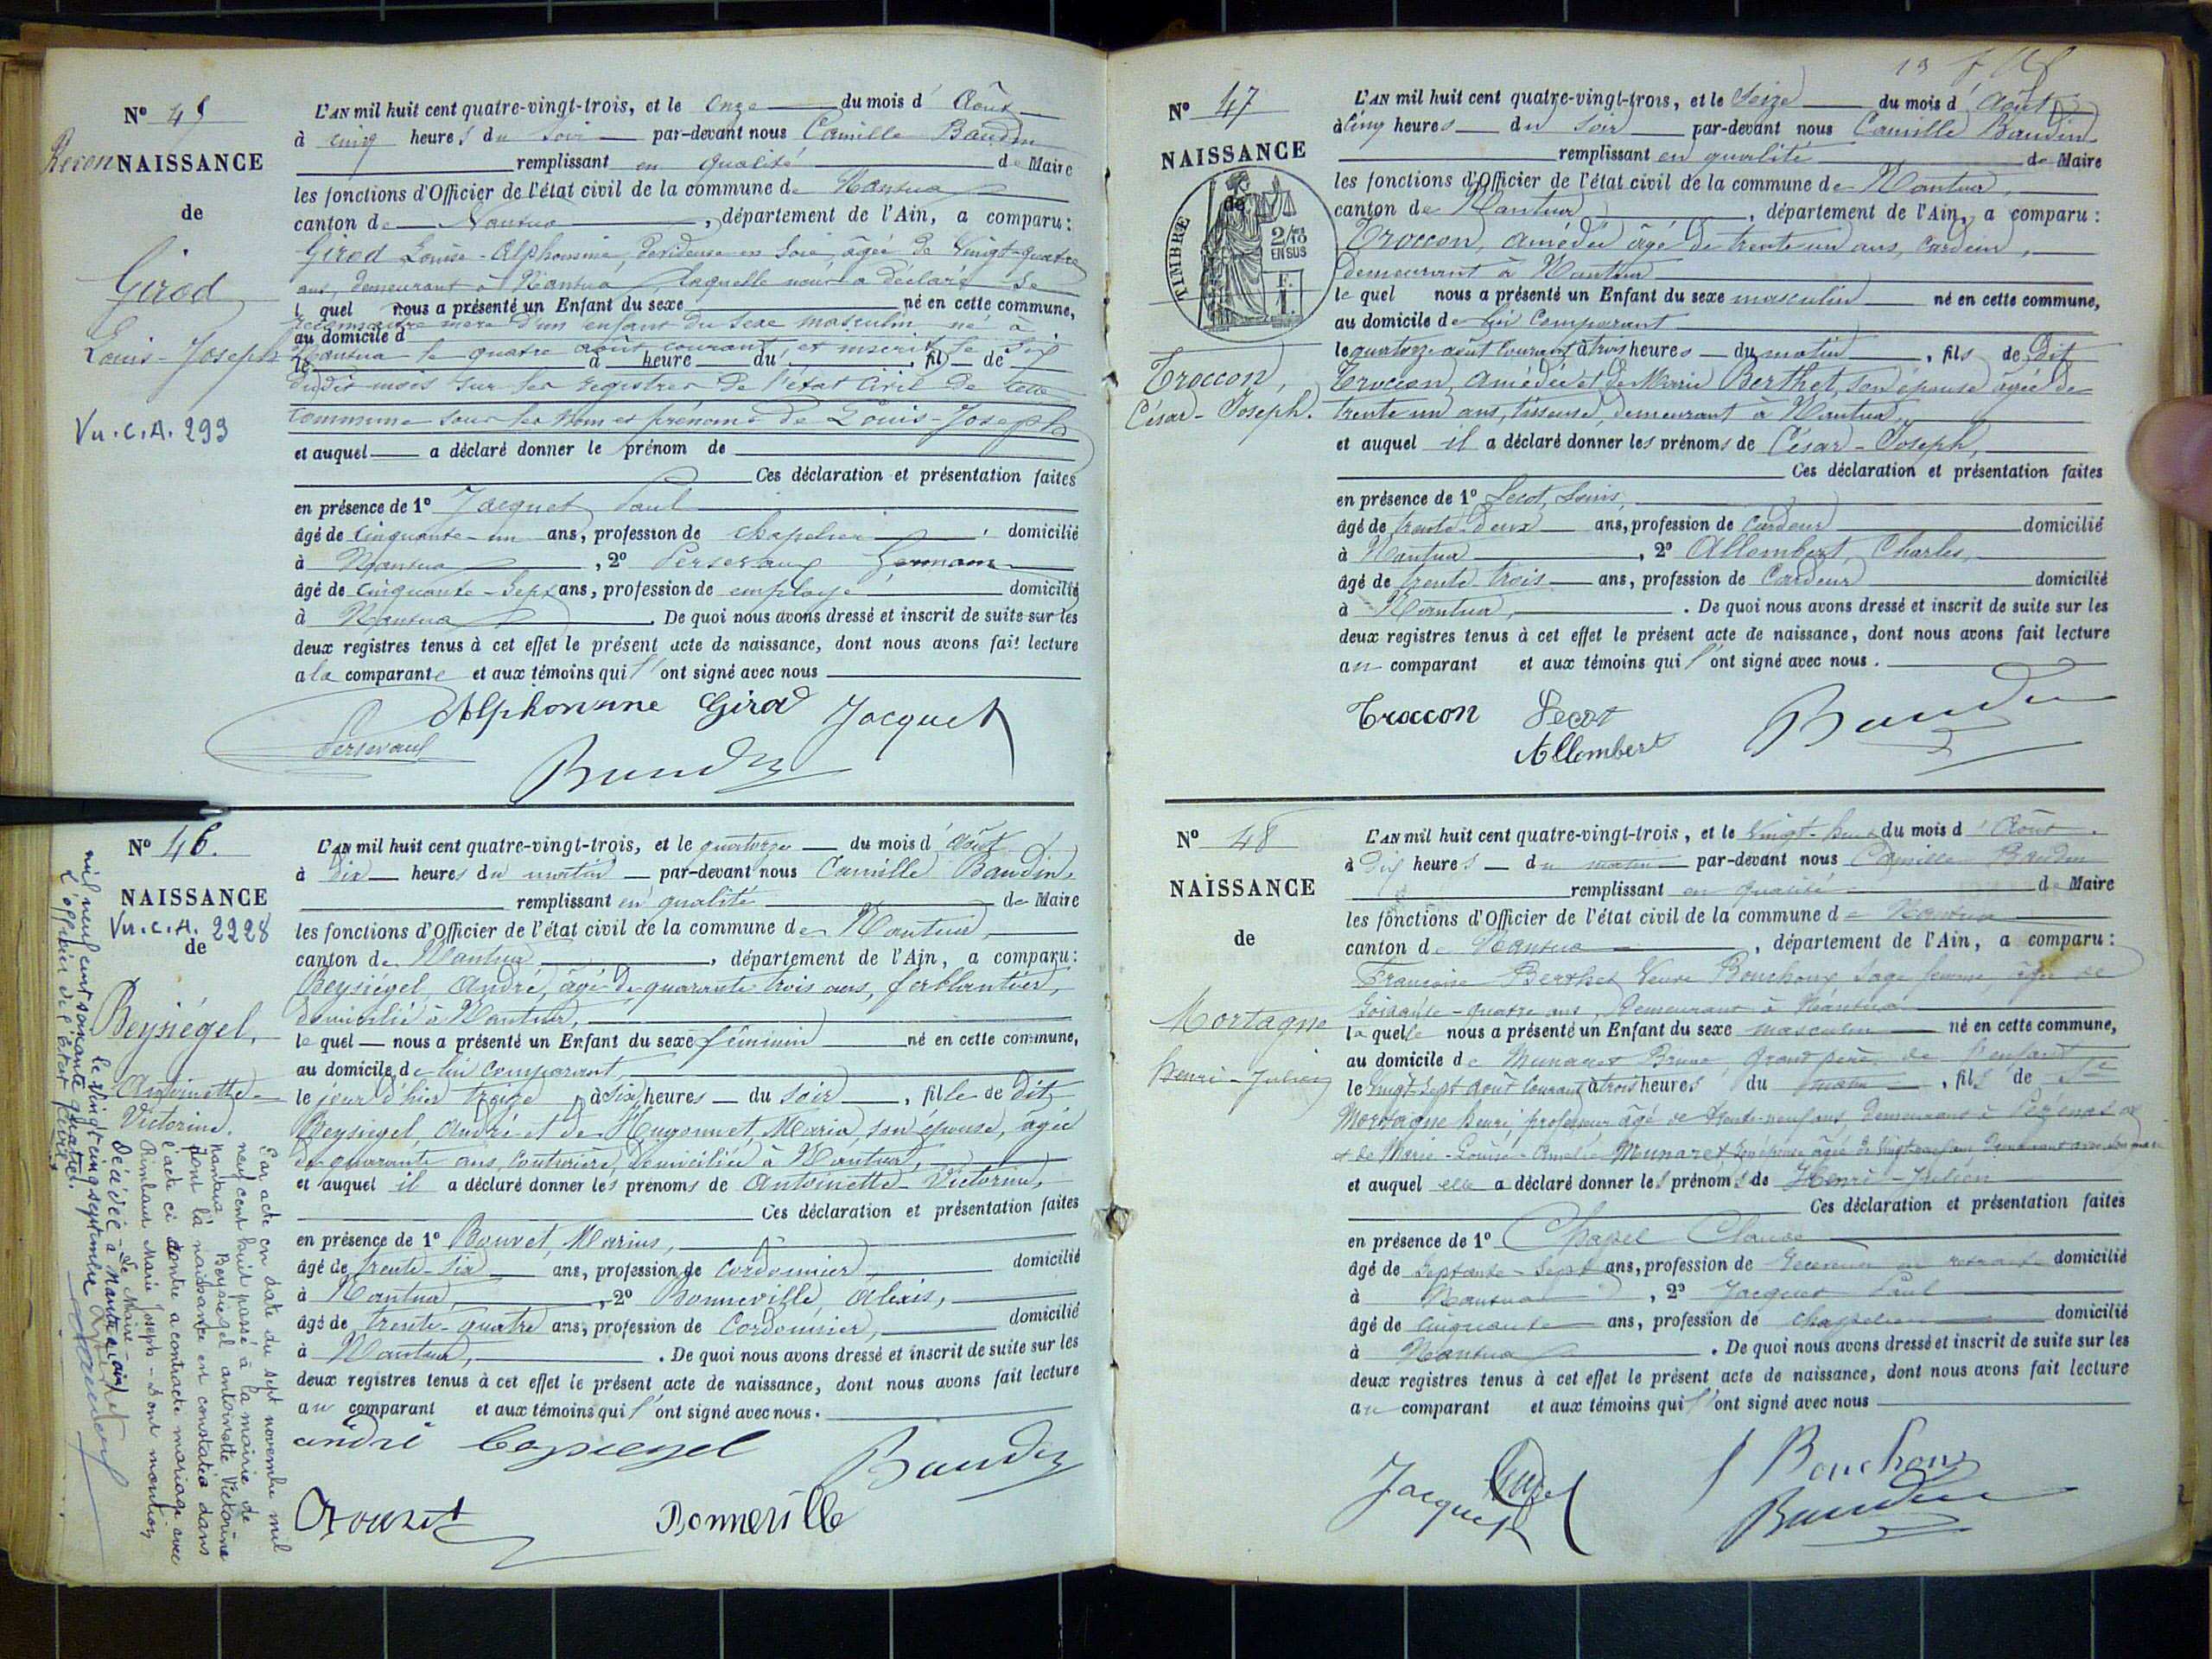 N° 45
Recon NAISSANCE
de
Girod
Louis-Joseph
Vu. C. A. 293
L'AN mil huit cent quatre-vingt-trois, et le onze du mois d'Août
à cinq heures du soir par-devant nous Camille Baudin
remplissant en qualité de Maire
les fonctions d'Officier de l'état civil de la commune de Nantua
canton de Nantua, département de l'Ain, a comparu:
Girod Louise-Alphonsine, dévideuse en soie, âgée de vingt-quatre
ans, demeurant à Nantua laquelle nous a déclaré se
l quel nous a présenté un Enfant du sexe né en cette commune,
reconnaître mère d'un enfant du sexe masculin né à
au domicile d
Nantua le quatre août courant, et inscrit le six
le à heure du fil de
dudit mois sur les registres de l'état civil de cette
commune sous les nom et prénoms de Louis-Joseph
et auquel a déclaré donner le prénom de
Ces déclaration et présentation faites
en présence de 1° Jacquet Paul
âgé de cinquante-un ans, profession de chapelier, domicilié
à Nantua, 2° Perseraux Germain
âgé de cinquante-sept ans, profession de employé domicilié
à Nantua. De quoi nous avons dressé et inscrit de suite sur les
deux registres tenus à cet effet le présent acte de naissance, dont nous avons fait lecture
à la comparante et aux témoins qui l'ont signé avec nous
Alphonsine Girod Jacquet
Perseraux
Baudin
N° 46.
NAISSANCE
Vu. C. A. 2228
de
Beysiégel,
Antoinette-
Victorine.
L'AN mil huit cent quatre-vingt-trois, et le quatorze du mois d'août
à dix heures du matin par-devant nous Camille Baudin,
remplissant en qualité de Maire
les fonctions d'Officier de l'état civil de la commune de Nantua,
canton de Nantua, département de l'Ain, a comparu:
Beysiégel, André, âgé de quarante trois ans, ferblantier,
domicilié à Nantua,
le quel nous a présenté un Enfant du sexe féminin né en cette commune,
au domicile de lui comparant,
le jour d'hier treize, à six heures du soir, fille de dit
Beysiégel, André et de Hugonnet, Maria, son épouse, âgée
de quarante ans, couturière, domiciliée à Nantua,
et auquel il a déclaré donner les prénoms de Antoinette-Victorine,
Ces déclaration et présentation faites
en présence de 1° Bouvet, Marius,
âgé de trente-six ans, profession de cordonnier, domicilié
à Nantua, 2° Bonneville, Alexis,
âgé de trente-quatre ans, profession de Cordonnier, domicilié
à Nantua, . De quoi nous avons dressé et inscrit de suite sur les
deux registres tenus à cet effet le présent acte de naissance, dont nous avons fait lecture
au comparant et aux témoins qui l'ont signé avec nous.
andré Beysiegel
Baudin
Bouvet Bonneville
Par acte en date du sept novembre mil
neuf cent huit passé à la mairie de
Nantua Beysiegel antoinette Victorine
dont la naissance est constatée dans
l'acte ci contre a contracté mariage avec
Rimbaud Marie Joseph - Dont mention
Le Maire
Décédée à Nantua (ain)
le vingt cinq septembre
mil neuf cent soixante quatre.
L'officier de l'état civil
N° 47
NAISSANCE
de
TIMBRE
2/10
EN SUS
F.
1.
Troccon,
César-Joseph.
L'AN mil huit cent quatre-vingt-trois, et le seize du mois d'Août
à cinq heures du soir par-devant nous Camille Baudin
remplissant en qualité de Maire
les fonctions d'Officier de l'état civil de la commune de Nantua,
canton de Nantua, département de l'Ain, a comparu:
Troccon, Amédée âgé de trente un ans, cardeur,
demeurant à Nantua
le quel nous a présenté un Enfant du sexe masculin né en cette commune,
au domicile de lui comparant
le quatorze août courant à trois heures du matin, fils de dit
Troccon, Amédée et de Marie Berthet, son épouse âgée de
trente un ans, tisseuse, demeurant à Nantua,
et auquel il a déclaré donner les prénoms de César-Joseph,
Ces déclaration et présentation faites
en présence de 1° Secot, Louis,
âgé de trente-deux ans, profession de cardeur domicilié
à Nantua, 2° Allembert, Charles,
âgé de trente trois ans, profession de Cardeur domicilié
à Nantua, . De quoi nous avons dressé et inscrit de suite sur les
deux registres tenus à cet effet le présent acte de naissance, dont nous avons fait lecture
au comparant et aux témoins qui l'ont signé avec nous.
Troccon Secot Baudin
Allembert
N° 48
NAISSANCE
de
Mortagne
Henri-Julien
L'AN mil huit cent quatre-vingt-trois, et le vingt-huit du mois d'Août
à dix heures du matin par-devant nous Camille Baudin
remplissant en qualité de Maire
les fonctions d'Officier de l'état civil de la commune de Nantua
canton de Nantua, département de l'Ain, a comparu:
Françoise Berthet Veuve Bouchoux sage femme âgée de
soixante-quatre ans, demeurant à Nantua
la quelle nous a présenté un Enfant du sexe masculin né en cette commune,
au domicile de Munaret Bruno, grand père de l'enfant
le vingt-sept août courant à trois heures du matin, fils de
Mortagne Henri professeur âgé de trente-neuf ans, demeurant à Pézenas
et de Marie-Louise-Amélie Munaret son épouse âgée de vingt neuf ans demeurant avec son mari
et auquel elle a déclaré donner les prénoms de Henri-Julien
Ces déclaration et présentation faites
en présence de 1° Chapel Claude
âgé de septante-sept ans, profession de receveur en retraite domicilié
à Nantua, 2° Jacquet Paul
âgé de cinquante ans, profession de chapelier domicilié
à Nantua. De quoi nous avons dressé et inscrit de suite sur les
deux registres tenus à cet effet le présent acte de naissance, dont nous avons fait lecture
au comparant et aux témoins qui l'ont signé avec nous
Jacquet Chapel f Bouchoux
Baudin